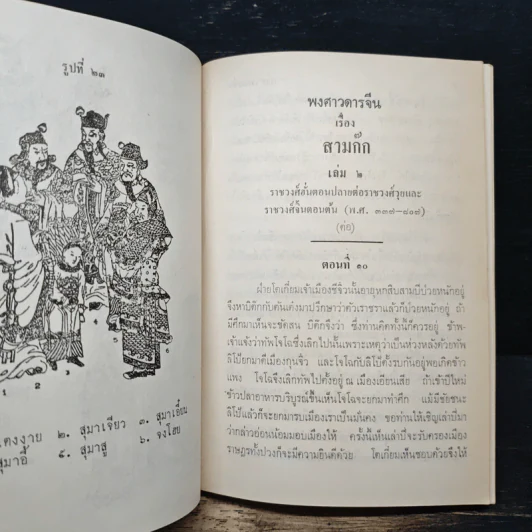 รูปที่ ๒๓
1
2
3
4
5
6
แดงงาย ๒. สุมาเจียว ๓. สุมาเอี๋ยน
สุมาอี้ ๕. สุมาสู ๖. จงโฮย
พงศาวดารจีน
เรื่อง
สามก๊ก
เล่ม ๒
ราชวงศ์ฮั่นตอนปลายต่อราชวงศ์วุยและ
ราชวงศ์จิ้นตอนต้น (พ.ศ. ๓๓๗–๘๐๗)
(ต่อ)
ตอนที่ ๑๐
ฝ่ายโตเกี๋ยมเจ้าเมืองชีจิ๋วนั้นอายุหกสิบสามปีป่วยหนักอยู่
จึงหาบิต๊กกับตันเต๋งมาปรึกษาว่าตัวเราชราแล้วก็ป่วยหนักอยู่ ถ้า
มีศึกมาเห็นจะขัดสน บิต๊กจึงว่า ซึ่งท่านคิดทั้งนี้ก็ควรอยู่ ข้าพ-
เจ้าแจ้งว่าทัพโจโฉซึ่งเลิกไปนั้นเพราะเหตุว่าเป็นห่วงหลังด้วยทัพ
ลิโป้ยกมาตีเมืองกุนจิ๋ว และโจโฉกับลิโป้ตั้งรบกันอยู่พอเกิดข้าว
แพง โจโฉจึงเลิกทัพไปตั้งอยู่ ณ เมืองเอียนเสีย ถ้าเข้าปีใหม่
ข้าวปลาอาหารบริบูรณ์ขึ้นเห็นโจโฉจะยกมาทำศึก แม้มีชัยชนะ
ลิโป้แล้วก็จะยกมารบเมืองเราเป็นมั่นคง ขอท่านให้เชิญเล่าปี่มา
ว่ากล่าวอ่อนน้อมมอบเมืองให้ ครั้งนี้เห็นเล่าปี่จะรับครองเมือง
ราษฎรทั้งปวงก็จะมีความยินดีด้วย โตเกี๋ยมเห็นชอบด้วยจึงให้